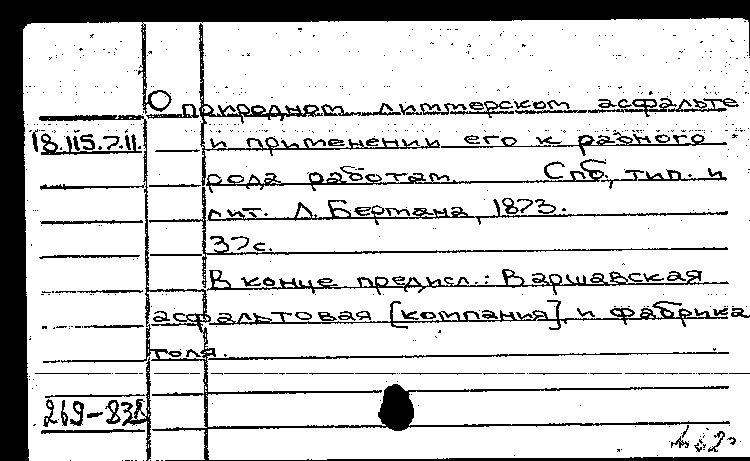 О природном лиммерском асфальте
18.115.7.11. и применении его к разного
рода работам. Спб, тип. и
лит. Л. Бермана, 1873.
37с.
В конце предисл.: Варшавская
асфальтовая [компания] и фабрика
толя.
269-83